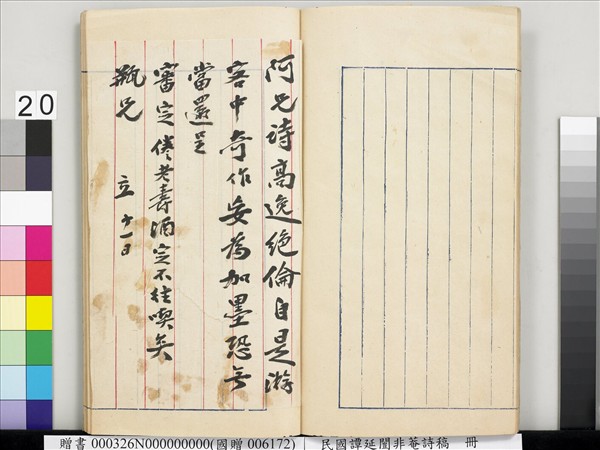 阿兄詩高逸絕倫自是游
客中奇作妄為加墨恐無
當還呈
審定 儘老壽酒定不往喫矣
瓶兄
立 十一日
20
贈書 000326N000000000(國贈 006172) 民國譚延闓非菴詩稿 冊